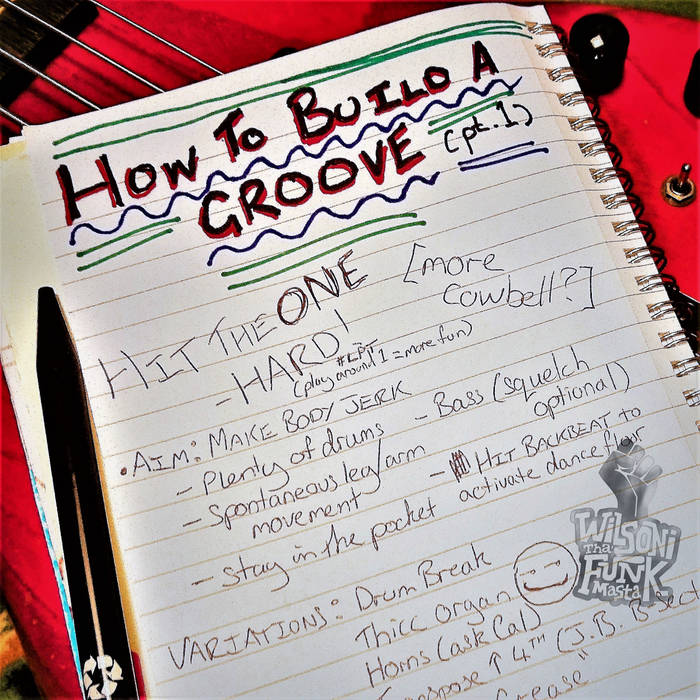 HOW TO BUILD A
GROOVE (pt.1)
HIT THE ONE
- HARD!
[more
Cowbell?]
#LPT
(play around 1 = more fun)
• AIM: MAKE BODY JERK
- Plenty of drums
- Spontaneous leg/arm
movement
- stay in the pocket
- Bass (squelch
optional)
- HIT BACKBEAT to
activate dancefloor
VARIATIONS: Drum Break
Thicc organ
Horns (ask Cal)
Transpose ↑ 4TH (J.B. B Sect
Grease"
WILSONi
Tha
FUNK
Masta